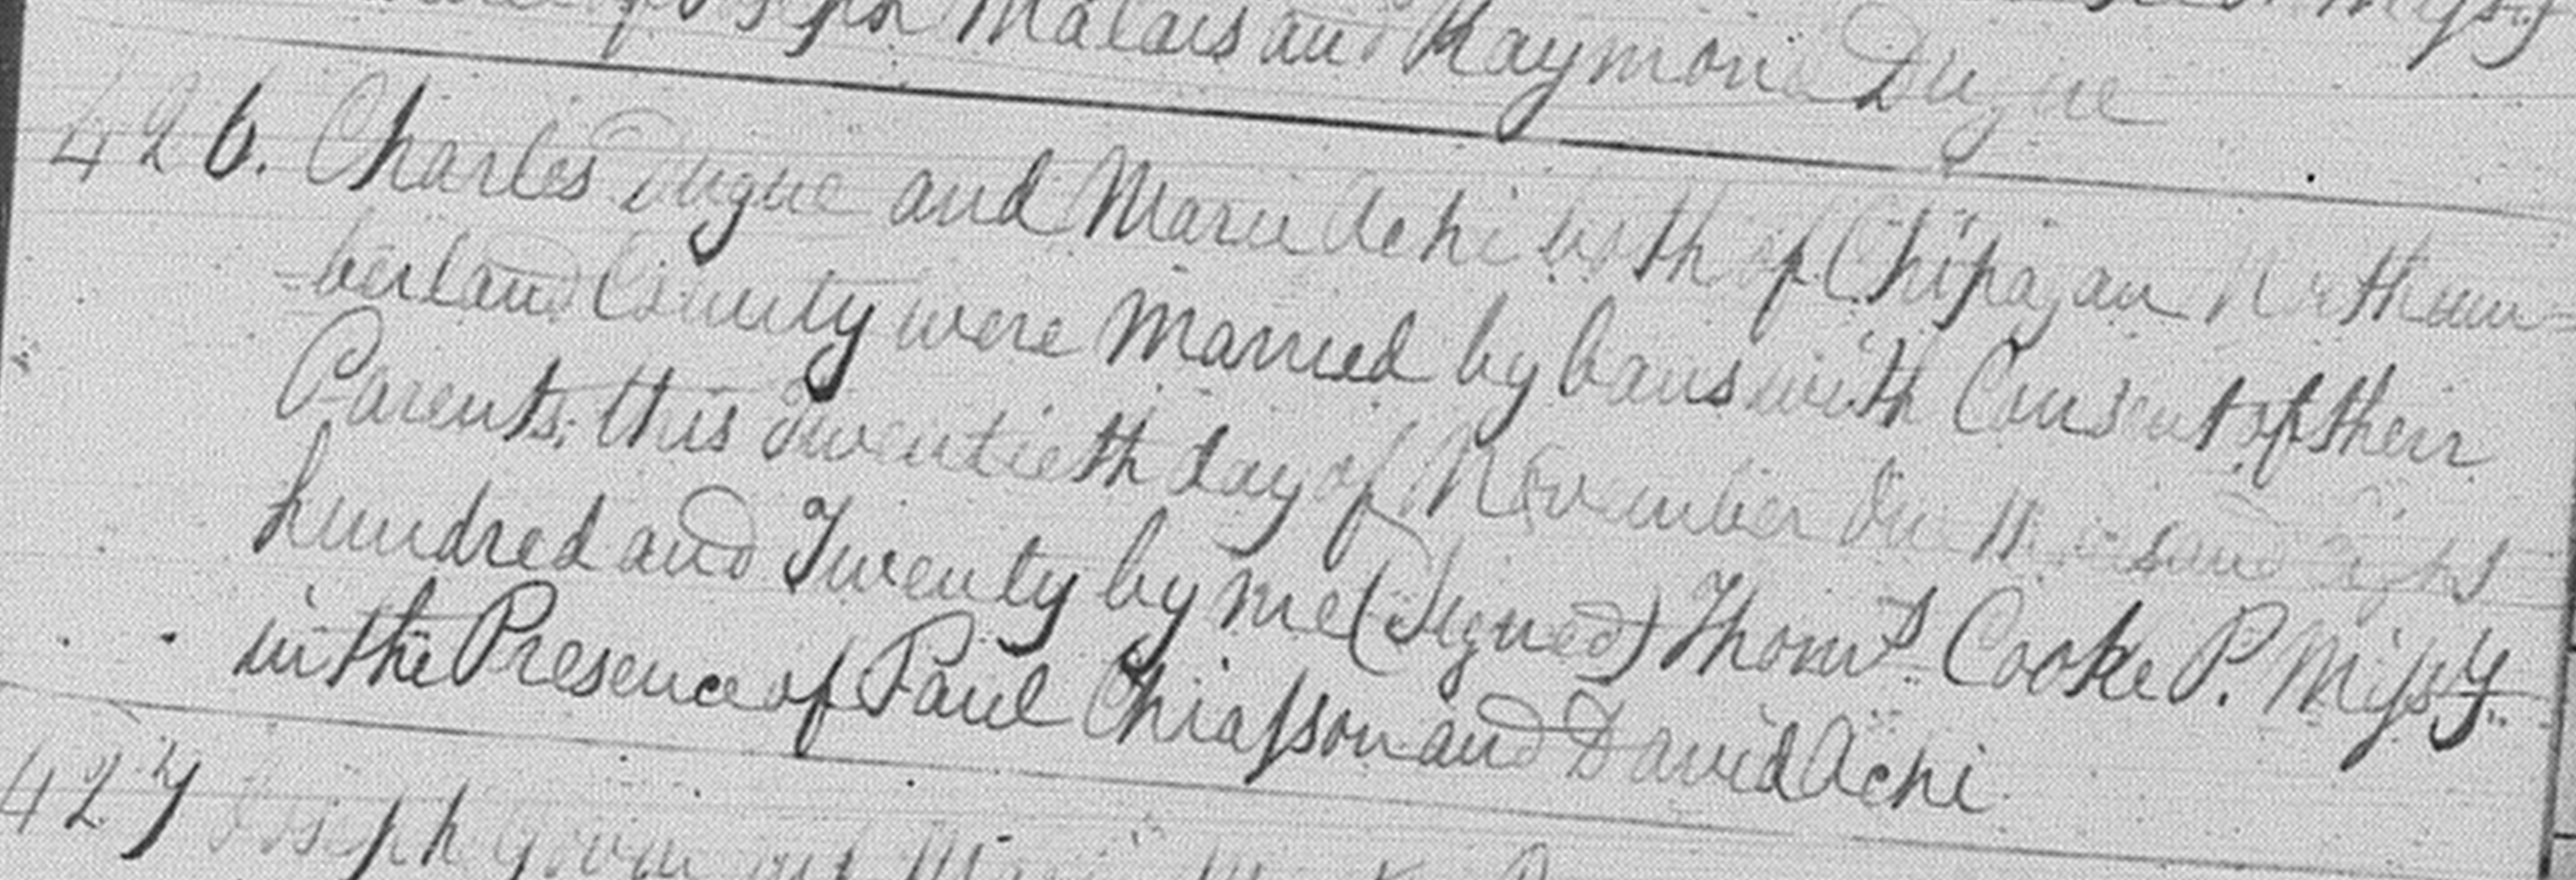 Joseph Malais and Raymond Dugue
426. Charles Dugue and Marie Achi both of Chipajan Northum-
-berland County were Married by bans with Consent of their
Parents, this Twentieth day of November One thousand Eight
hundred and Twenty by me (Signed) Thoms Cooke P. Missy
in the Presence of Paul Chiasson and David Achi
427 Joseph